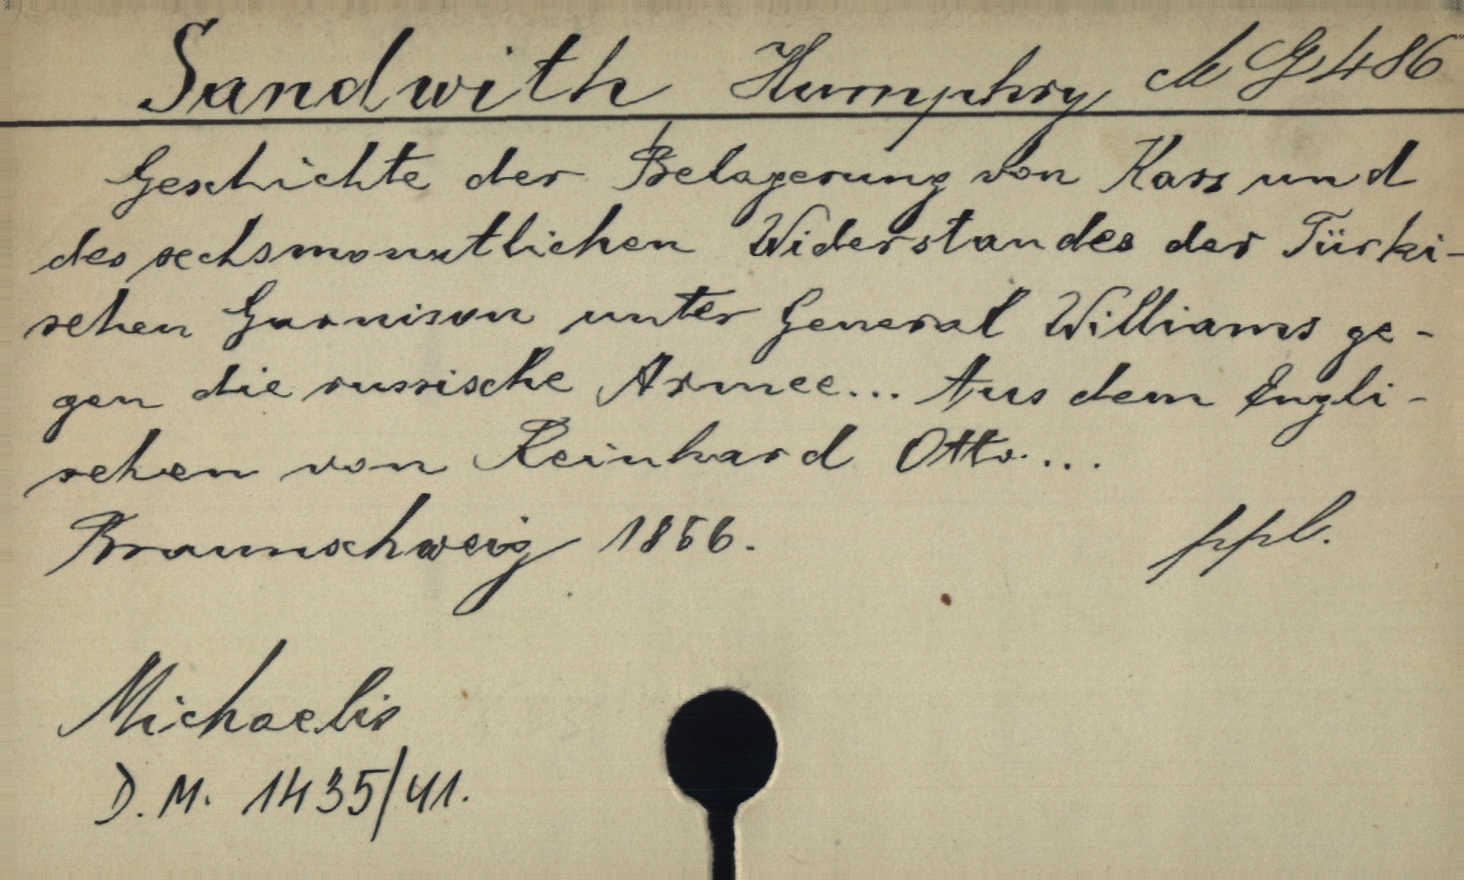 Sandwith Humphry cb G 486
Geschichte der Belagerung von Kars und
des sechsmonatlichen Widerstandes der Türki-
schen Garnison unter General Williams ge-
gen die russische Armee... Aus dem Engli-
schen von Reinhard Otto....
Braunschweig 1856. ppb.
Michaelis
D. M. 1435/41.